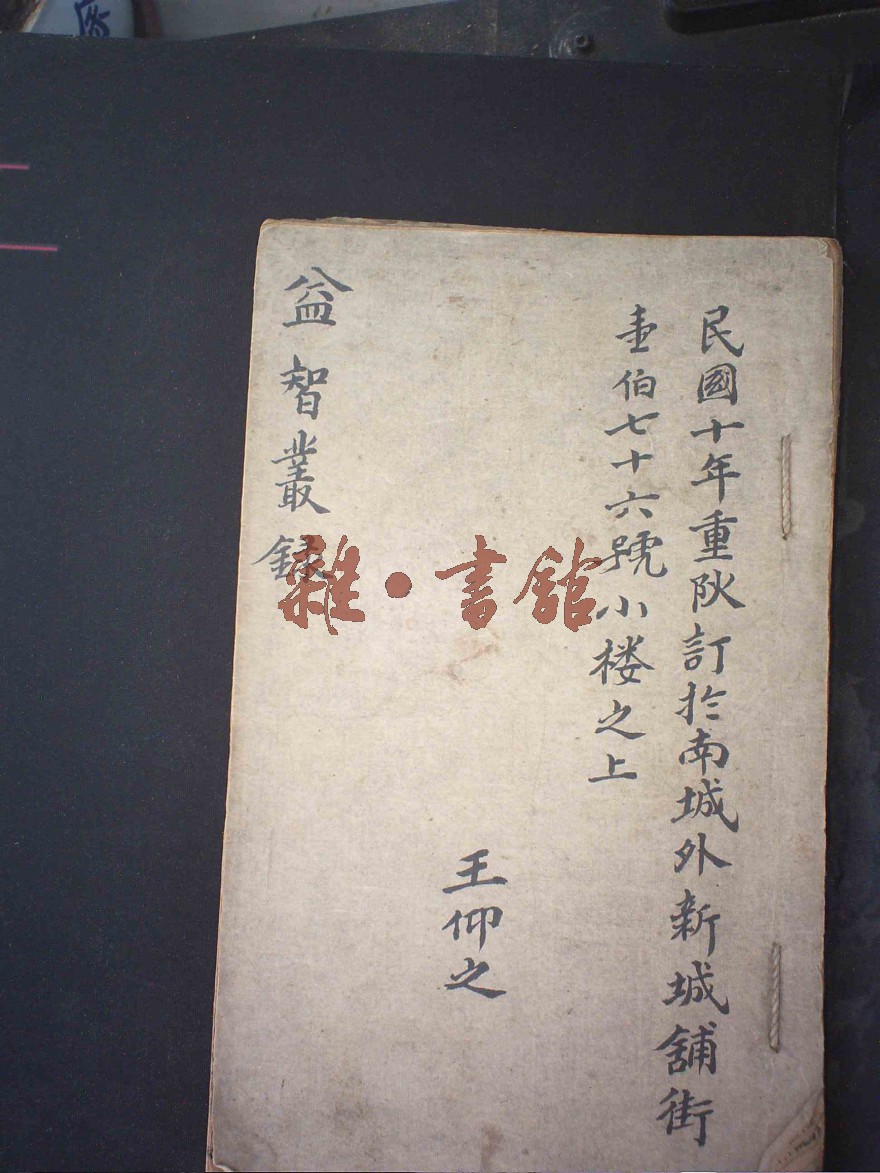 民國十年重阦訂於南城外新城舖街
壹伯七十六號小楼之上
王仰之
益智叢錄
雜·書舘